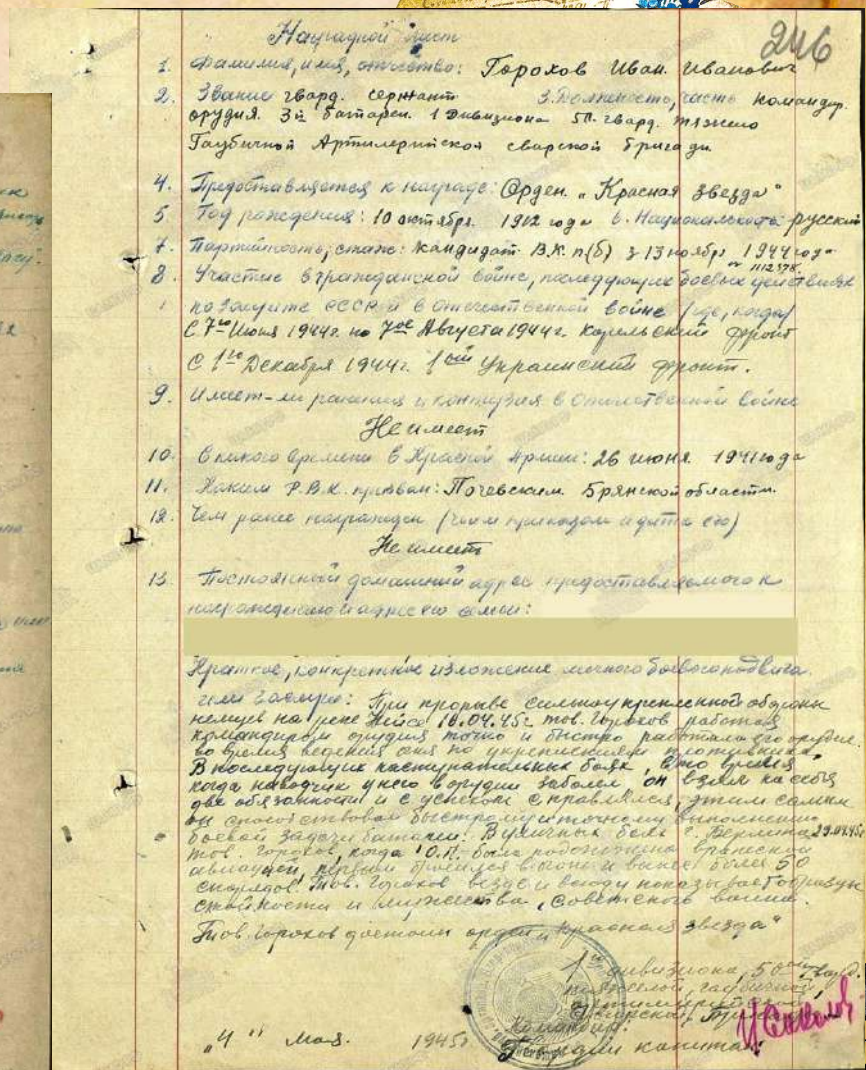 246
Наградной лист
1. Фамилия, имя, отчество: Горохов Иван Иванович
2. Звание гвард. сержант 3. Должность, часть командир
орудия 3й батареи 1 Дивизиона 50. гвард. тяжело
Гаубичной Артилерийской бригады
4. Предоставляется к награде: Орден "Красная звезда"
5. Год рождения: 10 октября 1912 года 6. Национальность: русский
7. Партийность, стаж: кандидат В.К.п(б) з 13 ноябр 1944 года
8. Участие в гражданской войне, последующих боевых действиях
по защите СССР и в отечественной войне (где, когда)
С 7го Июня 1944г. по 7ое Августа 1944г. Карельский фронт
С 1го Декабря 1944г. 1ый Украинский фронт.
9. Имеет-ли ранения и контузия в Отечественной войне
Не имеет
10. С какого времени в Красной Армии: 26 июня 1941 года
11. Каким Р.В.К. призван: Почевским Брянской области.
12. Чем ранее награжден (чьим приказом и дата его)
Не имеет
13. Постоянный домашний адрес предоставляемого к
награждению и адрес его семьи:
Краткое, конкретное изложение личного боевого подвига
или заслуг: При прорыве сильноукрепленной обороны
немцев на реке Нейсе 16.04.45г тов. Горохов работая
командиром орудия точно и быстро работало его орудие
во время ведения огня по укреплениям противника.
В последующих наступательных боях, в то время,
когда наводчик у него в орудии заболел он взял на себя
две обязанности и с успехом справлялся, этим самым
он способствовал быстрому и точному выполнению
боевой задачи батареи. В уличных боях г. Берлина 29.04.45г
тов. Горохов, когда О.П. была подожжена вражеской
авиацией, первым бросился в огонь и вынес более 50
снарядов. Тов. Горохов везде и всюду показывает образцы
стойкости и мужества, Советского воина.
Тов. Горохов достоин орден "Красная звезда"
1го дивизиона, 50ой гвард.
тяжелой, гаубичной,
артиллерийской
Командир:
Гвардии капитан:
"4" Мая 1945г.